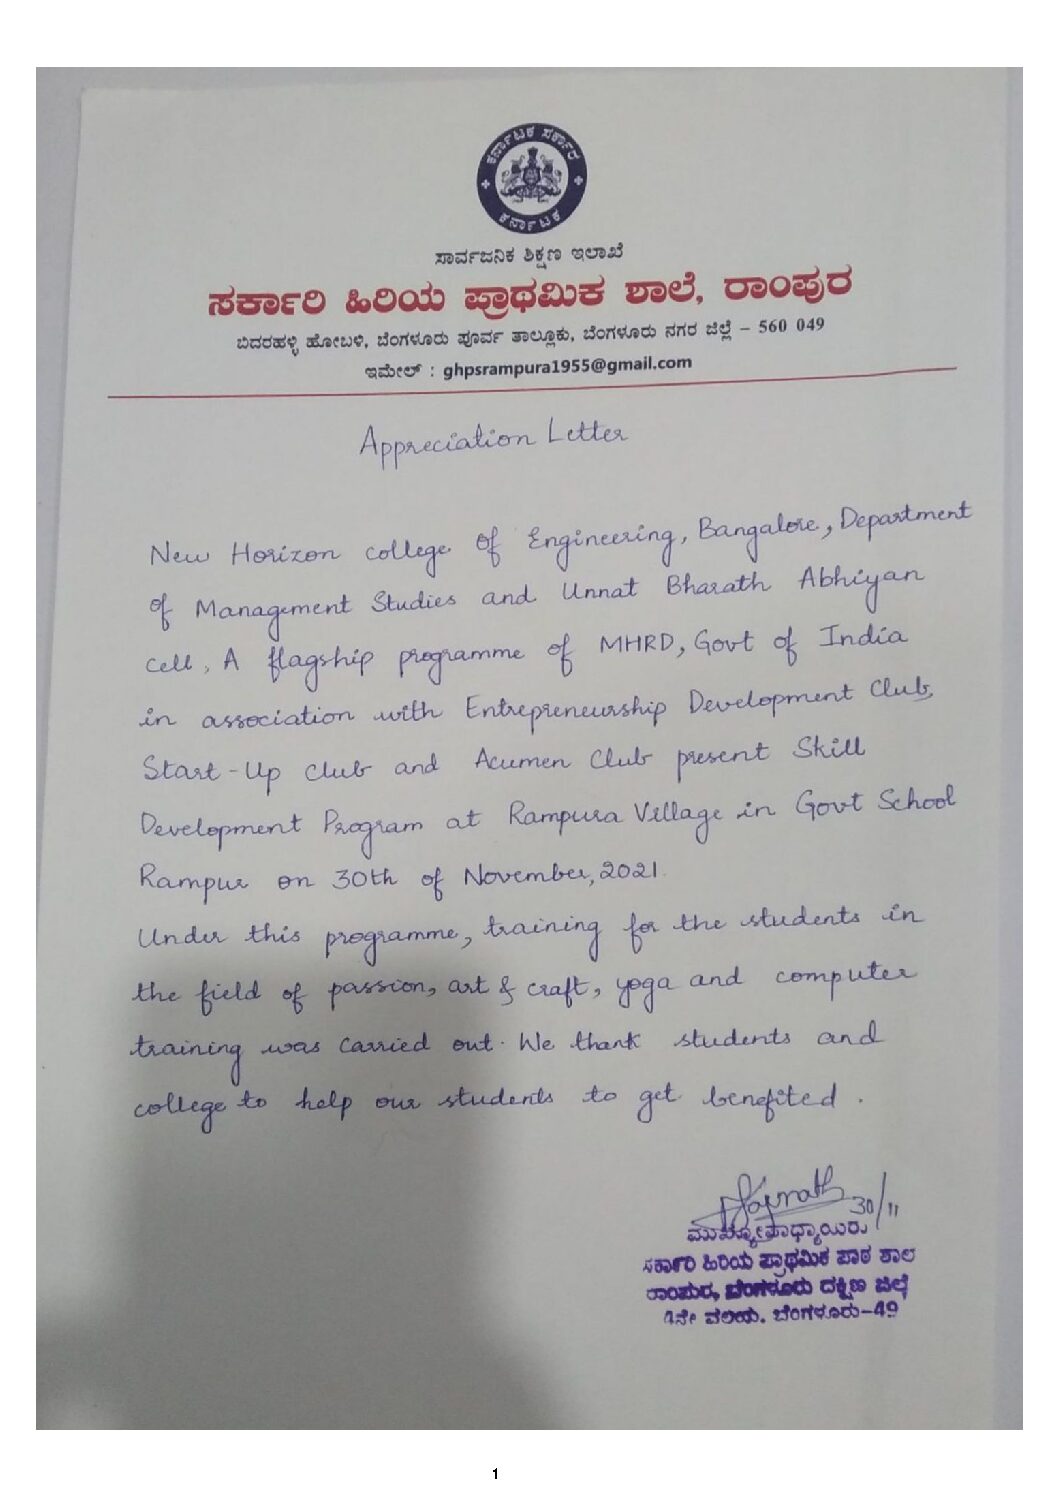 ಕರ್ನಾಟಕ ಸರ್ಕಾರ
ಕರ್ನಾಟಕ
ಸಾರ್ವಜನಿಕ ಶಿಕ್ಷಣ ಇಲಾಖೆ
ಸರ್ಕಾರಿ ಹಿರಿಯ ಪ್ರಾಥಮಿಕ ಶಾಲೆ, ರಾಂಪುರ
ಬಿದರಹಳ್ಳಿ ಹೋಬಳಿ, ಬೆಂಗಳೂರು ಪೂರ್ವ ತಾಲ್ಲೂಕು, ಬೆಂಗಳೂರು ನಗರ ಜಿಲ್ಲೆ – 560 049
ಇಮೇಲ್ : ghpsrampura1955@gmail.com
Appreciation Letter
New Horizon college of Engineering, Bangalore, Department
of Management Studies and Unnat Bharath Abhiyan
cell, A flagship programme of MHRD, Govt of India
in association with Entrepreneurship Development Club,
Start-Up club and Acumen Club present Skill
Development Program at Rampura Village in Govt School
Rampur on 30th of November, 2021.
Under this programme, training for the students in
the field of passion, art & craft, yoga and computer
training was carried out. We thank students and
college to help our students to get benefited.
30/11
ಮುಖ್ಯೋಪಾಧ್ಯಾಯರು
ಸರ್ಕಾರಿ ಹಿರಿಯ ಪ್ರಾಥಮಿಕ ಪಾಠ ಶಾಲೆ
ರಾಂಪುರ, ಬೆಂಗಳೂರು ದಕ್ಷಿಣ ಜಿಲ್ಲೆ
4ನೇ ವಲಯ. ಬೆಂಗಳೂರು-49
1